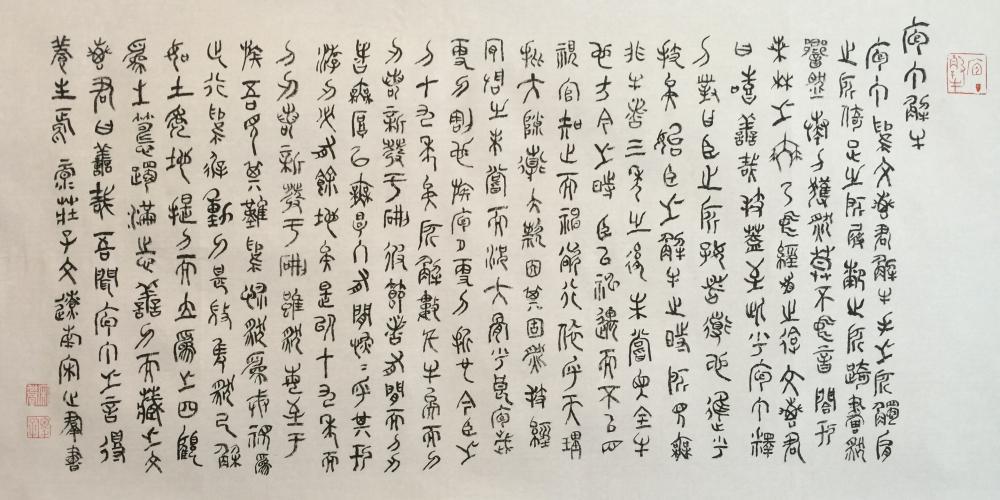 庖丁解牛
庖丁為文惠君解牛手之所觸肩
之所倚足之所履膝之所踦砉然
嚮然奏刀騞然莫不中音合於
桑林之舞乃中經首之會文惠君
曰嘻善哉技蓋至此乎庖丁釋
刀對曰臣之所好者道也進乎
技矣始臣之解牛之時所見無
非牛者三年之後未嘗見全牛
也方今之時臣以神遇而不以目
視官知止而神欲行依乎天理
批大隙導大窾因其固然技經
肯綮之未嘗而況大軱乎良庖歲
更刀割也族庖月更刀折也今臣之
刀十九年矣所解數千牛而刀
刃若新發于硎彼節者有間而刀刃
者無厚以無厚入有間恢恢乎其於
游刃必有餘地矣是以十九年而
刀刃若新發于硎雖然每至于
族吾見其難為怵然為戒視為
止行為遲動刀甚微謋然已解
如土委地提刀而立為之四顧
為之躊躇滿志善刀而藏之文
惠君曰善哉吾聞庖丁之言得
養生焉 莊子文遼南宋羣書